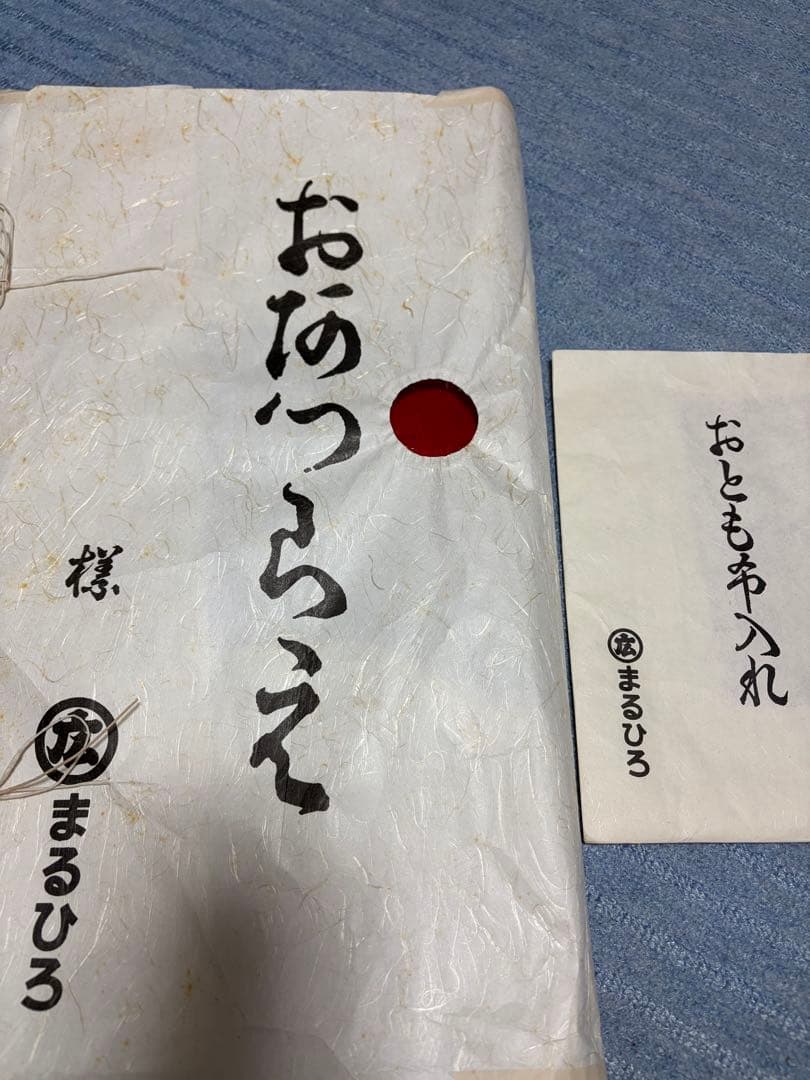 おあつらえ
様
広 まるひろ
おとも布入れ
広 まるひろ